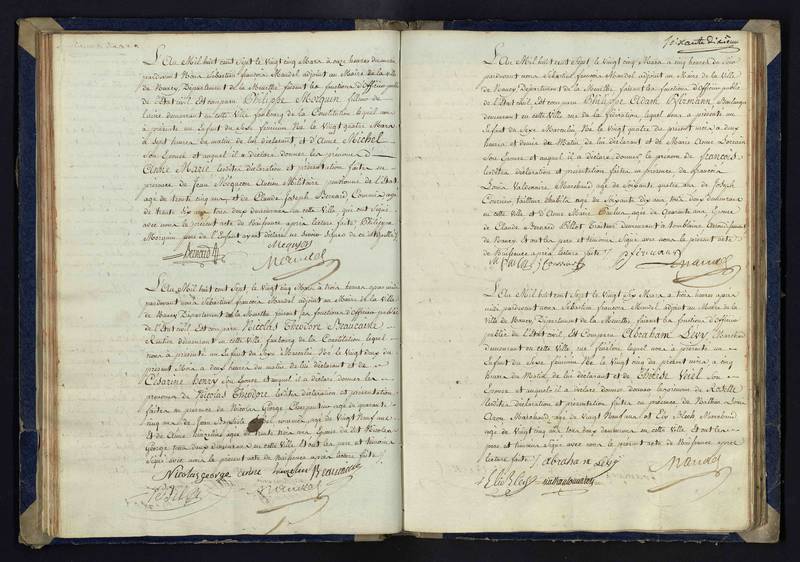 L'an Mil huit cent Sept le Vingt cinq Mars à onze heures du matin
pardevant nous Sebastien françois Mandel adjoint au Maire de la ville
de Nancy Département de la Meurthe faisant les fonctions d'Officier public
de l'état civil Est comparu Philippe Morquin fileur de
laine demeurant en cette Ville faubourg de la Constitution lequel nous
a présenté un Enfant du Sexe féminin Né le Vingt quatre Mars
à sept heures du matin de lui déclarant et d'Anne Michel
Son Epouse et auquel il a déclaré donner les prénoms d'
Anne Marie lesdites déclaration et présentation faites en
présence de Jean Megucon Ancien Militaire pensionné de l'Etat
agé de trente cinq ans et de Claude Joseph Bernard Commis agé
de trente Six ans tous deux demeurans en cette Ville, qui ont Signé
avec nous le présent acte de Naissance après lecture faite, Philippe
Morquin père de l'Enfant ayant déclaré ne savoir Signer de ce interpellé
Bernard
Mandel
L'an Mil huit cent Sept le Vingt cinq Mars à trois heures après midi
pardevant nous Sebastien françois Mandel adjoint au Maire de la Ville
de Nancy Département de la Meurthe faisant les fonctions d'Officier public
de l'état civil est comparu Nicolas Théodore Beaucarde
Rentier demeurant en cette Ville, faubourg de la Constitution lequel
nous a présenté un Enfant du Sexe Masculin Né le Vingt deux du
présent Mois à deux heures du matin de lui déclarant et de
Césarine Henry son Epouse et auquel il a déclaré donner les
prénoms de Nicolas Théodore lesdites déclaration et présentation
faites en présence de Nicolas George Charpentier agé de quarante
cinq ans de Jean agé de Vingt Neuf ans
Et de Anne agée de trente trois ans Epouse du dit Nicolas
George tous deux demeurans en cette Ville Et ont les père et témoins
Signé avec nous le présent acte de Naissance après lecture faite
Nicolas george Beaucarde
Mandel
Soixante dixième
L'an Mil huit cent Sept, le Vingt cinq Mars à cinq heures du Soir
pardevant nous Sebastien françois Mandel adjoint au Maire de la Ville
de Nancy Département de la Meurthe, faisant les fonctions d'Officier public
de l'état civil Est comparu Philippe Adam Boulanger
demeurant en cette Ville rue de la fédération, lequel nous a présenté un
Enfant du Sexe Masculin Né le Vingt quatre du présent mois à deux
heures et demie du Matin de lui déclarant et de Marie Anne Lorrain
Son Epouse et auquel il a déclaré donner le prénom de françois
lesdites déclaration et présentation faites en présence de françois
Louis Marchand agé de Soixante quatre ans de Joseph
tailleur d'habits agé de Soixante dix ans tous deux demeurans
en cette Ville et d'Anne Marie agée de Quarante ans Epouse
de Claude Bernard Pillot demeurant à tomblaine Arrondissement
de Nancy Et ont les père et témoins Signé avec nous le présent acte
de Naissance après lecture faite
Mandel
L'an Mil huit cent Sept le Vingt Six Mars à trois heures après
midi pardevant nous Sebastien françois Mandel adjoint au Maire de la
Ville de Nancy, Département de la Meurthe, faisant les fonctions d'Officier
public de l'état civil Est Comparu Abraham Levy Marchand
demeurant en cette Ville rue lequel nous a présenté un
Enfant du Sexe féminin Né le Vingt cinq du présent mois à cinq
heures du Matin de lui déclarant et de Thérèse Veiel Son
Epouse et auquel il a déclaré donner le prénom de Rosette
lesdites déclaration et présentation faites en présence de Nathan Louis
Aron Marchand agé de Vingt Neuf ans et Ely Bloch Marchand
agé de Vingt cinq ans tous deux demeurans en cette Ville. Et ont les
père et témoins Signé avec nous le présent acte de Naissance après
lecture faite abraham Levy
Mandel